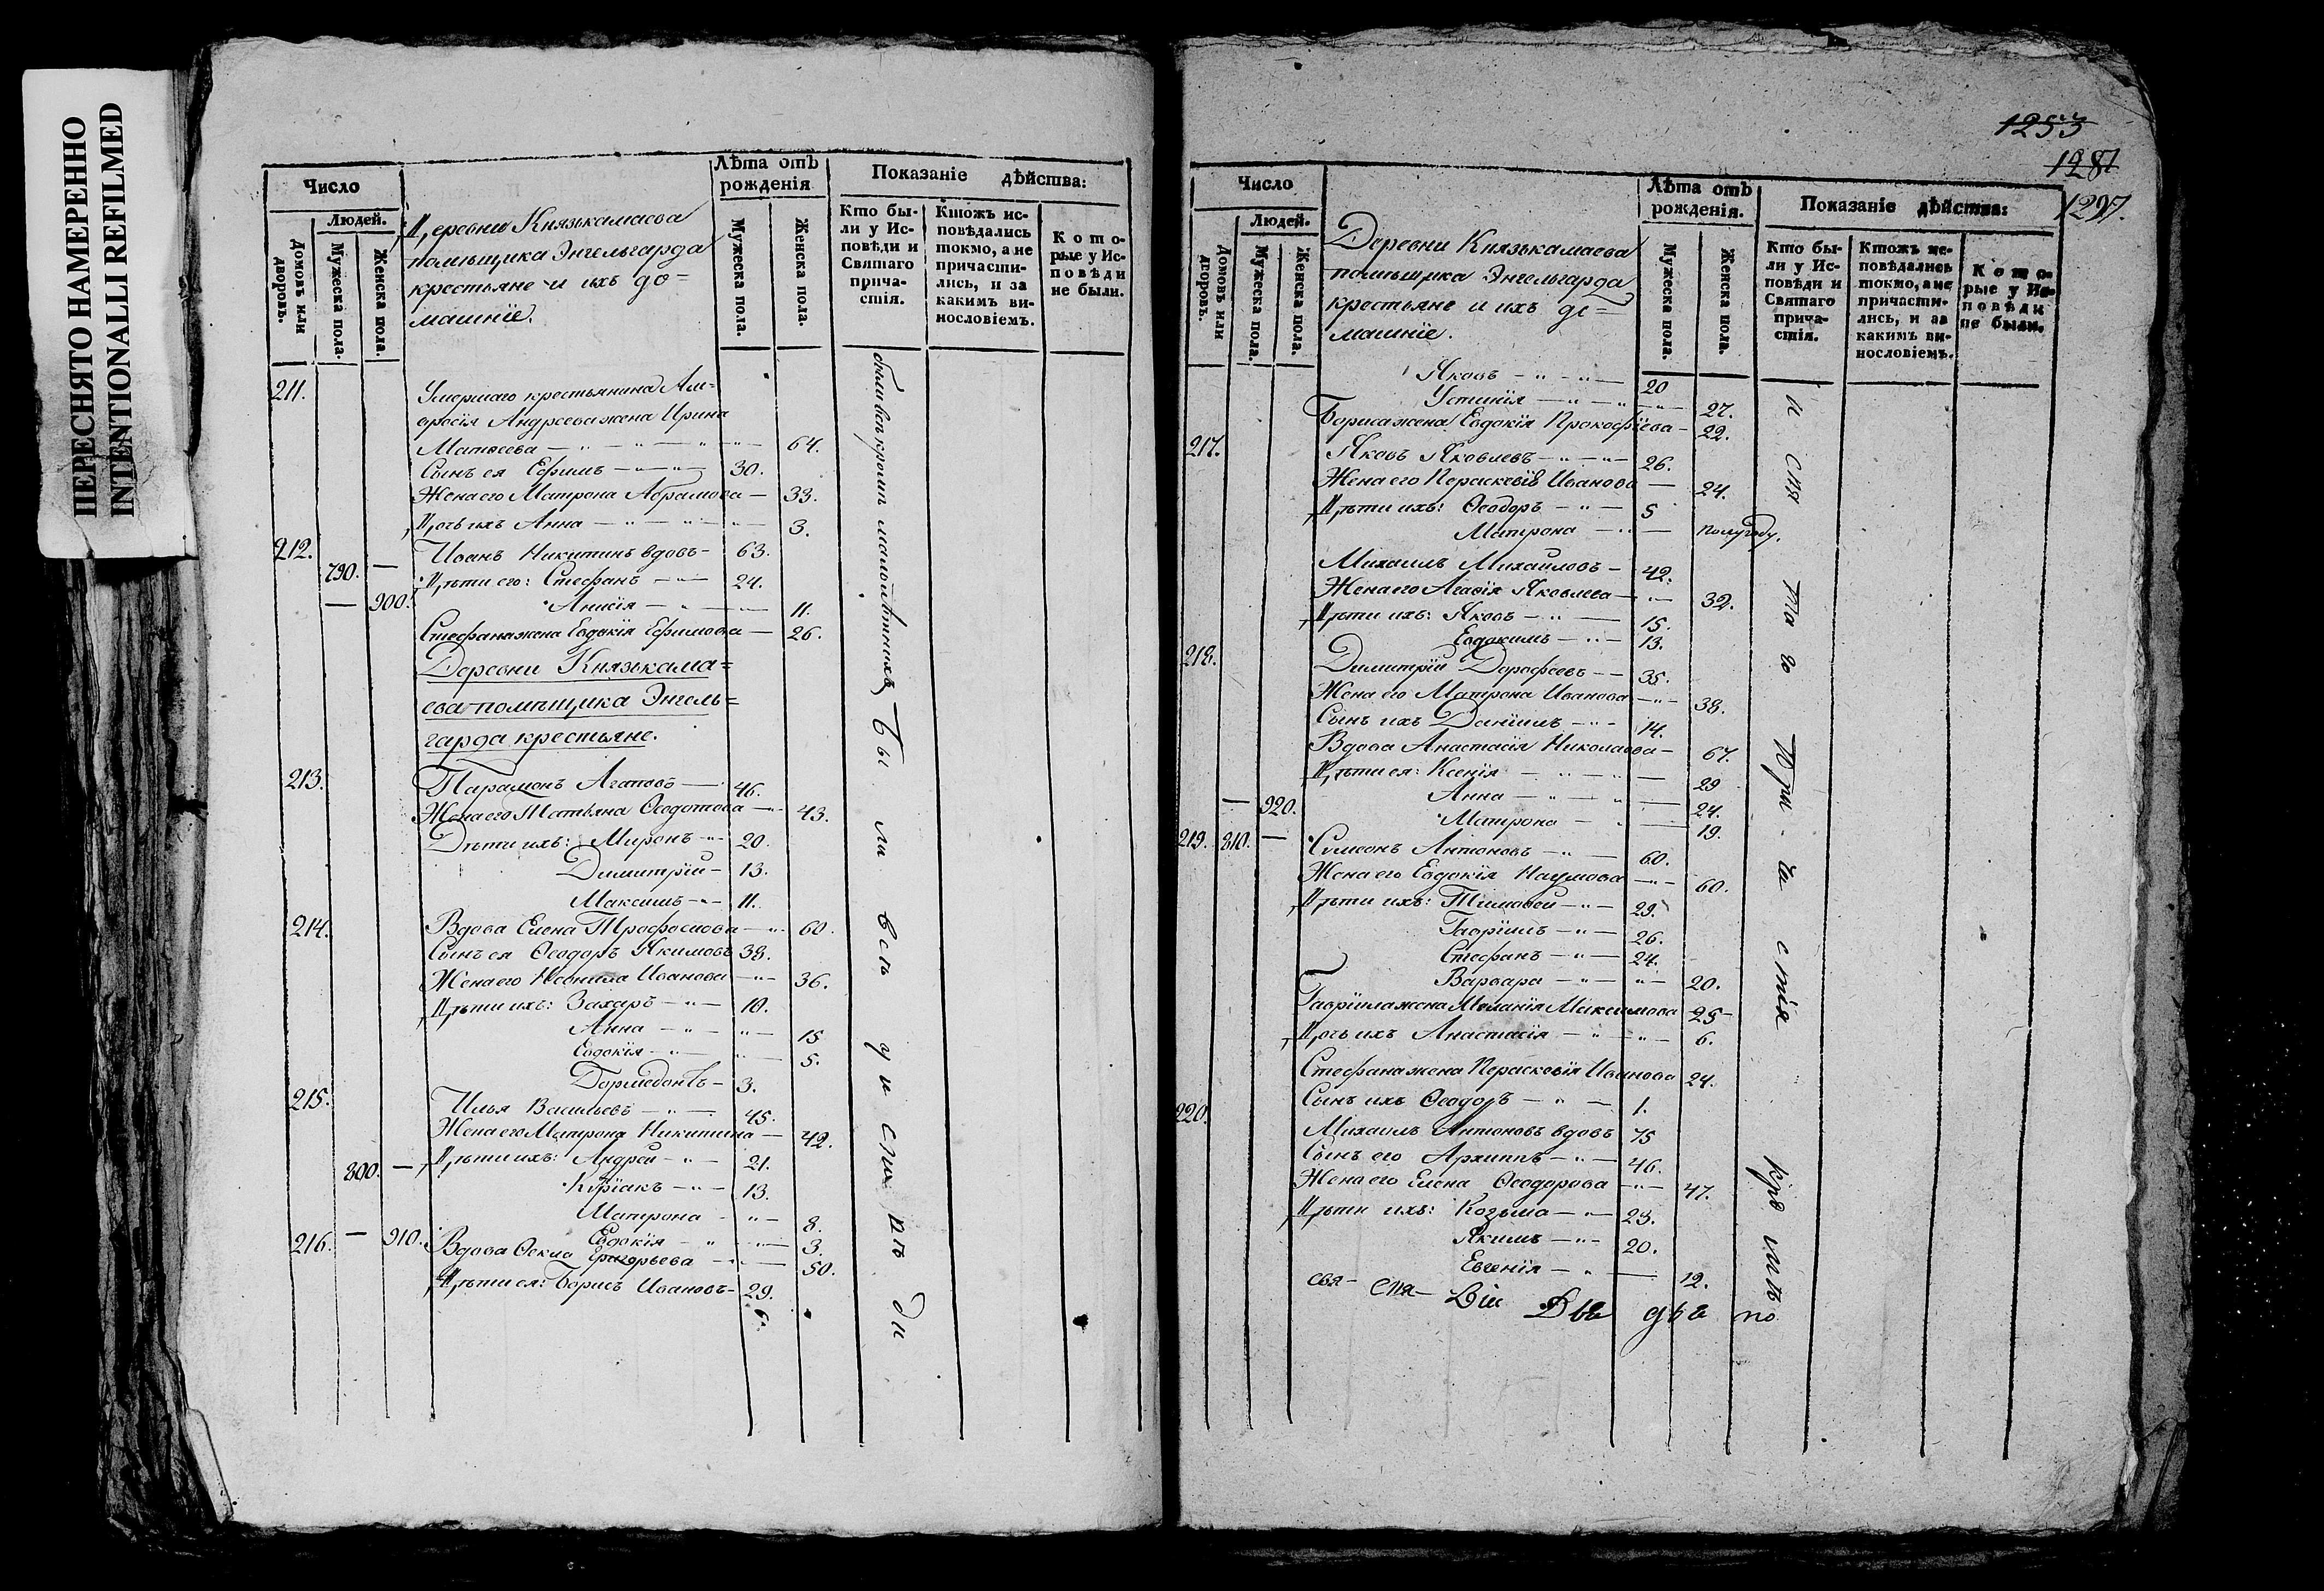 ПЕРЕСНЯТО НАМЕРЕННО
INTENTIONALLI REFILMED
Число
Людей.
Домовъ или дворовъ.
Мужеска пола.
Женска пола.
Деревни Князькамаева
помѣщика Энгельгарда
крестьяне и ихъ до=
машніе.
Лѣта отъ рожденія
Мужеска пола.
Женска пола.
Показаніе дѣйства:
Кто бы-
ли у Ис-
повѣди и
Святаго
прича-
стія.
Ктожъ ис-
повѣдались
токмо, а не
причасти-
лись, и за
какимъ ви-
нословіемъ.
Кото-
рые у Ис-
повѣди
не были.
211. Умершаго крестьянина Ам-
вросія Андреева жена Ирина
Матвеева 64.
Сынъ ея Ефимъ 30.
Жена его Матрона Абрамова 33.
Дочь ихъ Анна 3.
212. Иванъ Никитинъ вдовъ 63.
790. — Дѣти его: Стефанъ 24.
— 900. Анисія 11.
Стефана жена Евдокія Ефимова 26.
Деревни Князькама=
ева помѣщика Энгель=
гарда крестьяне.
213. Парамонъ Агаповъ 46.
Жена его Татьяна Ѳедотова 43.
Дѣти ихъ: Миронъ 20.
Димитрій 13.
Максимъ 11.
214. Вдова Елена Трофимова 60.
Сынъ ея Ѳеодоръ Якимовъ 38.
Жена его Неонила Иванова 36.
Дѣти ихъ: Захаръ 10.
Анна 15
Евдокія 5.
Дормедонтъ 3.
215. Илья Васильевъ 45.
Жена его Матрона Никитина 42.
800. — Дѣти ихъ: Андрей 21.
Киріакъ 13.
Матрона 8.
— 910. Евдокія 3.
216. Вдова Ѳекла Григорьева 50.
Дѣти ея: Борисъ Ивановъ 29.
были всѣ кромѣ малолѣтнихъ
Бы ли всѣ у и спо вѣ ди
1253
1287
1297.
Число
Людей.
Домовъ или дворовъ.
Мужеска пола.
Женска пола.
Деревни Князькамаева
помѣщика Энгельгарда
крестьяне и ихъ до=
машніе.
Лѣта отъ рожденія.
Мужеска пола.
Женска пола.
Показаніе дѣйства:
Кто бы-
ли у Ис-
повѣди и
Святаго
прича-
стія.
Ктожъ ис-
повѣдались
токмо, а не
причасти-
лись, и за
какимъ ви-
нословіемъ.
Кото-
рые у Ис-
повѣди
не были.
Яковъ 20
Устинія 27.
Бориса жена Евдокія Прокофіева 22.
217. Яковъ Яковлевъ 26.
Жена его Параскевія Иванова 24.
Дѣти ихъ: Ѳеодоръ 5
Матрона полугоду.
Михаилъ Михайловъ 42.
Жена его Агафія Яковлева 32.
Дѣти ихъ: Яковъ 15.
Евдокимъ 13.
218. Димитрій Дорофеевъ 35.
Жена его Матрона Иванова 38.
Сынъ ихъ Даніилъ 14.
Вдова Анастасія Николаева 67.
Дѣти ея: Ксенія 29
Анна 24.
— 920. Матрона 19.
219. 810. — Симеонъ Антоновъ 60.
Жена его Евдокія Наумова 60.
Дѣти ихъ: Тимофей 29.
Гавріилъ 26.
Стефанъ 24.
Варвара 20.
Гавріила жена Меланія Максимова 25
Дочь ихъ Анастасія 6.
Стефана жена Парасковія Иванова 24.
Сынъ ихъ Ѳеодоръ 1.
220. Михаилъ Антоновъ вдовъ 75
Сынъ его Архипъ 46.
Жена его Елена Ѳеодорова 47.
Дѣти ихъ: Козьма 23.
Якимъ 20.
Евгенія 12.
и свя та го При ча стія
кро мѣ